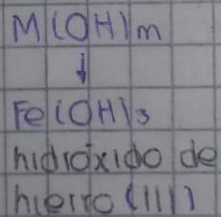 M(OH)m
↓
Fe(OH)3
hidróxido de
hierro (III)